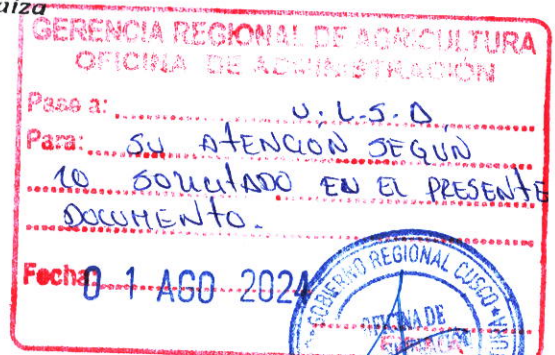 uiza
GERENCIA REGIONAL DE AGRICULTURA
OFICINA DE ADMINISTRACIÓN
Pase a: U.L.S.A
Para: SU ATENCION SEGUN
LO SOLICITADO EN EL PRESENTE
DOCUMENTO.
Fecha: 01 AGO 2024
GOBIERNO REGIONAL CUSCO
OFICINA DE